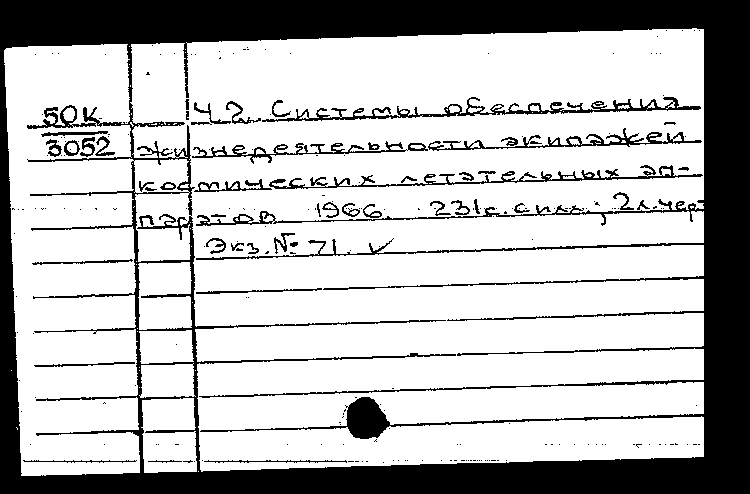 50К Ч.2. Системы обеспечения
3052 жизнедеятельности экипажей
космических летательных ап-
паратов 1966. 231с. с илл.; 2л.черт
Экз.№ 71. ✓